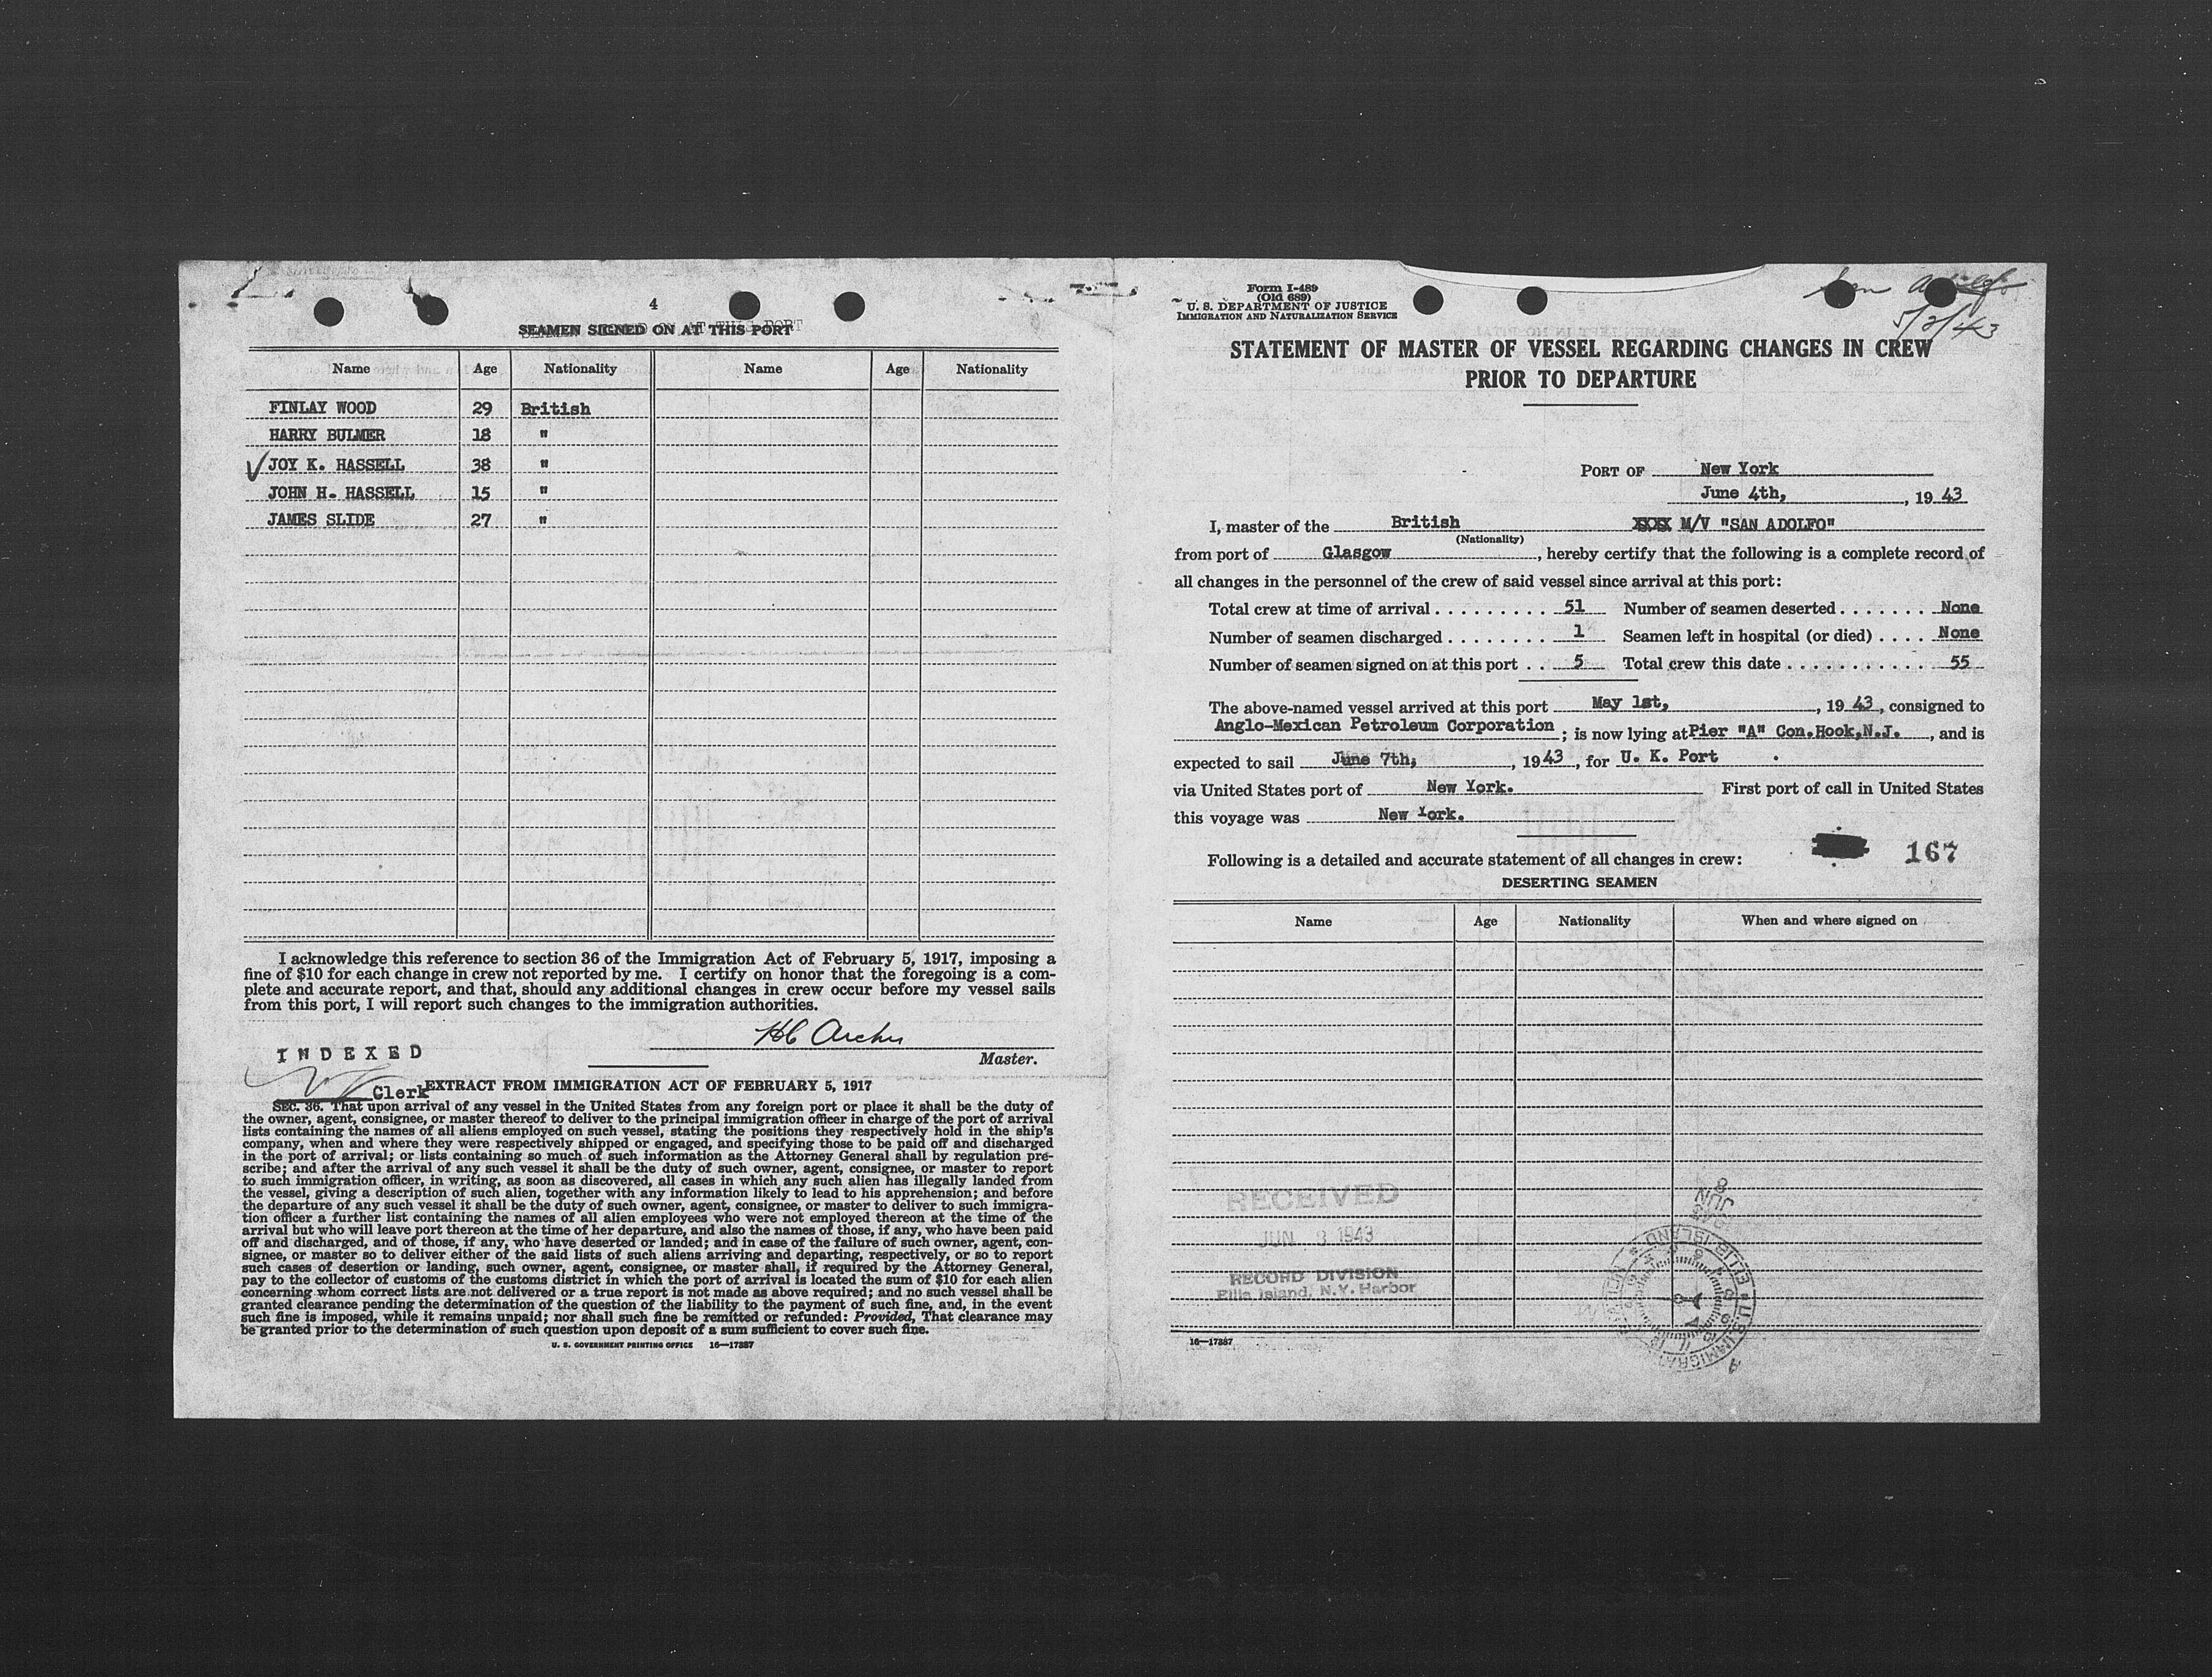 4
SEAMEN SIGNED ON AT THIS PORT
Name Age Nationality Name Age Nationality
FINLAY WOOD 29 British
HARRY BULMER 18 "
JOY K. HASSELL 38 "
JOHN H. HASSELL 15 "
JAMES SLIDE 27 "
I acknowledge this reference to section 36 of the Immigration Act of February 5, 1917, imposing a
fine of $10 for each change in crew not reported by me. I certify on honor that the foregoing is a com-
plete and accurate report, and that, should any additional changes in crew occur before my vessel sails
from this port, I will report such changes to the immigration authorities.
Master.
INDEXED
Clerk
EXTRACT FROM IMMIGRATION ACT OF FEBRUARY 5, 1917
SEC. 36. That upon arrival of any vessel in the United States from any foreign port or place it shall be the duty of
the owner, agent, consignee, or master thereof to deliver to the principal immigration officer in charge of the port of arrival
lists containing the names of all aliens employed on such vessel, stating the positions they respectively hold in the ship's
company, when and where they were respectively shipped or engaged, and specifying those to be paid off and discharged
in the port of arrival; or lists containing so much of such information as the Attorney General shall by regulation pre-
scribe; and after the arrival of any such vessel it shall be the duty of such owner, agent, consignee, or master to report
to such immigration officer, in writing, as soon as discovered, all cases in which any such alien has illegally landed from
the vessel, giving a description of such alien, together with any information likely to lead to his apprehension; and before
the departure of any such vessel it shall be the duty of such owner, agent, consignee, or master to deliver to such immigra-
tion officer a further list containing the names of all alien employees who were not employed thereon at the time of the
arrival but who will leave port thereon at the time of her departure, and also the names of those, if any, who have been paid
off and discharged, and of those, if any, who have deserted or landed; and in case of the failure of such owner, agent, con-
signee, or master so to deliver either of the said lists of such aliens arriving and departing, respectively, or so to report
such cases of desertion or landing, such owner, agent, consignee, or master shall, if required by the Attorney General,
pay to the collector of customs of the customs district in which the port of arrival is located the sum of $10 for each alien
concerning whom correct lists are not delivered or a true report is not made as above required; and no such vessel shall be
granted clearance pending the determination of the question of the liability to the payment of such fine, and, in the event
such fine is imposed, while it remains unpaid; nor shall such fine be remitted or refunded: Provided, That clearance may
be granted prior to the determination of such question upon deposit of a sum sufficient to cover such fine.
U. S. GOVERNMENT PRINTING OFFICE 16—17387
Form I-489
(Old 689)
U. S. DEPARTMENT OF JUSTICE
IMMIGRATION AND NATURALIZATION SERVICE
San Adolfo
5/3/43
STATEMENT OF MASTER OF VESSEL REGARDING CHANGES IN CREW
PRIOR TO DEPARTURE
PORT OF New York
June 4th, , 19 43
I, master of the British XXXX M/V "SAN ADOLFO"
(Nationality)
from port of Glasgow , hereby certify that the following is a complete record of
all changes in the personnel of the crew of said vessel since arrival at this port:
Total crew at time of arrival . . . . . . . . . 51 Number of seamen deserted . . . . . . . None
Number of seamen discharged . . . . . . . . 1 Seamen left in hospital (or died) . . . . None
Number of seamen signed on at this port . . 5 Total crew this date . . . . . . . . . . . . 55
The above-named vessel arrived at this port May 1st, , 19 43 , consigned to
Anglo-Mexican Petroleum Corporation ; is now lying at Pier "A" Con.Hook,N.J. , and is
expected to sail June 7th, , 19 43 , for U. K. Port .
via United States port of New York. First port of call in United States
this voyage was New York.
167
Following is a detailed and accurate statement of all changes in crew:
DESERTING SEAMEN
Name Age Nationality When and where signed on
RECEIVED
JUN 8 1943
RECORD DIVISION
Ellis Island, N.Y. Harbor
JUN 8
1943
ELLIS ISLAND
16—17387